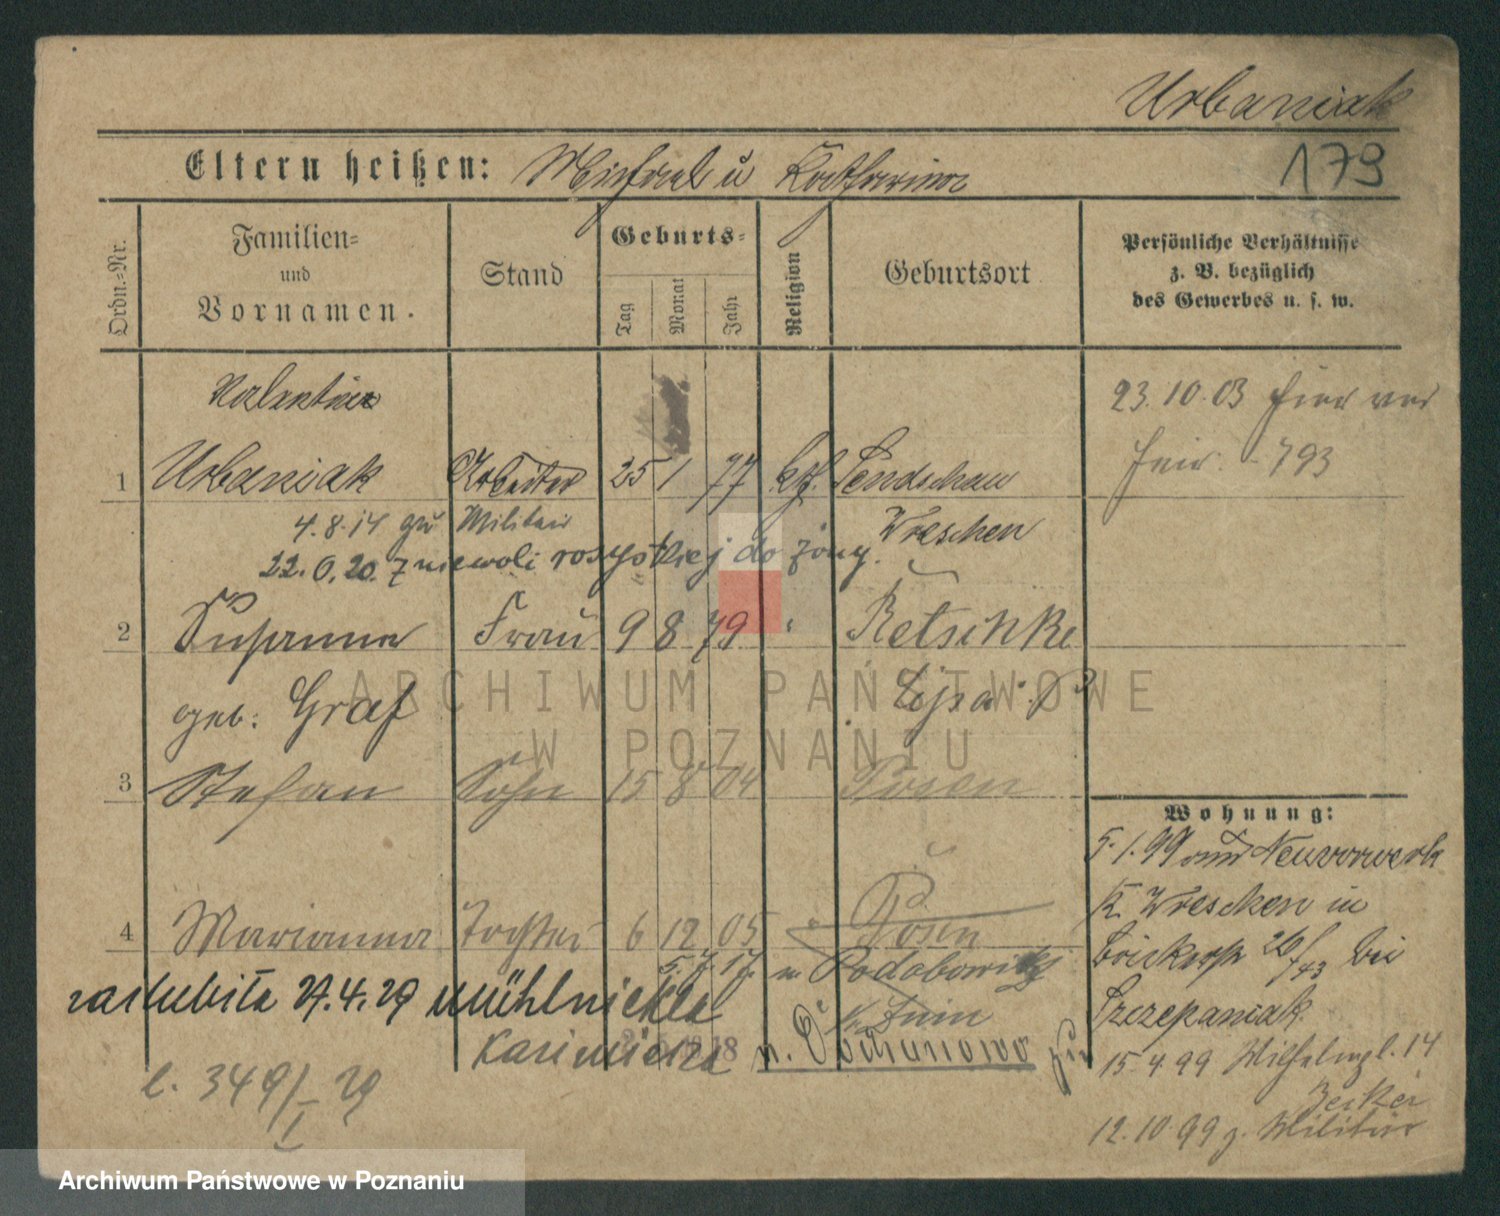 Urbaniak
179
Eltern heißen: Michael u Katharina
Ordn.-Nr.
Familien-
und
Vornamen.
Stand
Geburts-
Tag
Monat
Jahr
Religion
Geburtsort
Persönliche Verhältnisse
z. B. bezüglich
des Gewerbes u. s. w.
Valentin
1 Urbaniak Arbeiter 25 1 77 kth. Sendschau
Wreschen
23.10.03 hier
793
4.8.14 zu Militair
z niewoli rosyjskiej do żony.
2 Susanna Frau 9 8 79 " Retschke
geb: Graf
3 Stefan Sohn 15 8 04 Posen
4 Marianna Tochter 6 12 05 Posen
5.7.17. Podobowitz
K. Znin
zaślubiła 27.4.29 Mühlnickla
Kasimierza
l. 349/I 29
Wohnung:
5.1.99 aus Neuvorwerk
K. Wreschen in
bei
Szczepaniak
15.4.99 Wilhelmpl. 14
Becker
12.10.99 z. Militär
ARCHIWUM PAŃSTWOWE
W POZNANIU
Archiwum Państwowe w Poznaniu